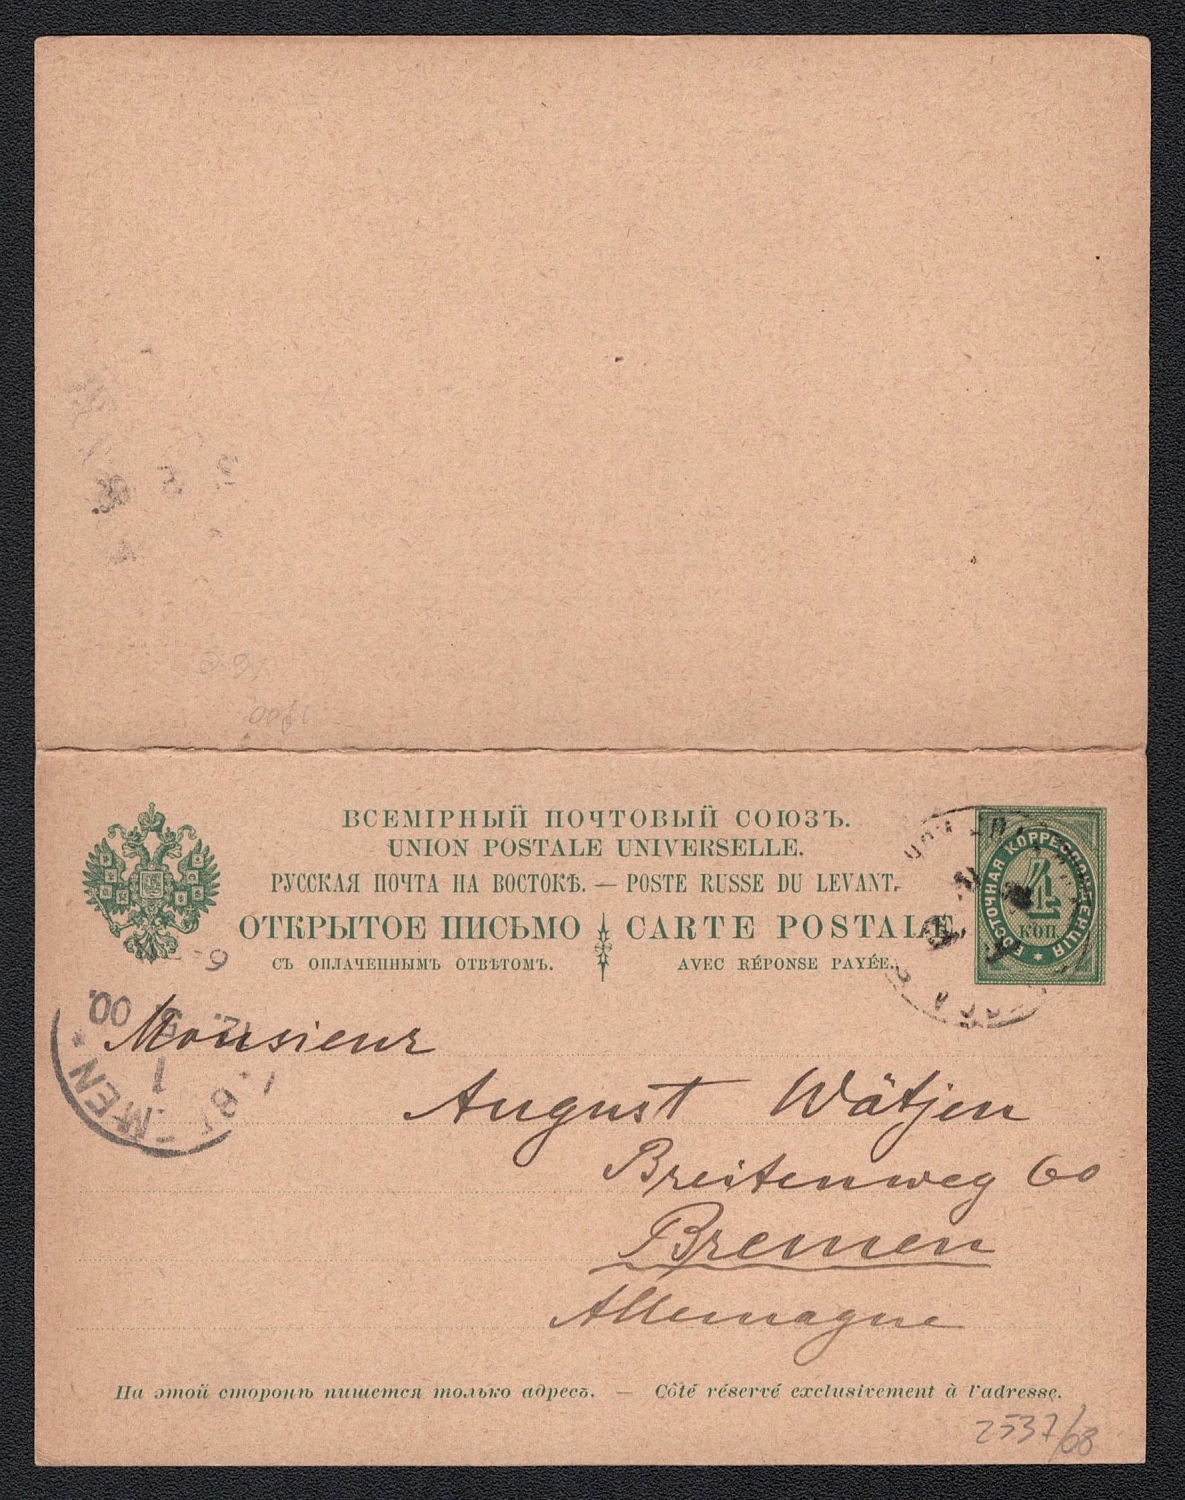 1900
ВСЕМІРНЫЙ ПОЧТОВЫЙ СОЮЗЪ.
UNION POSTALE UNIVERSELLE.
РУССКАЯ ПОЧТА НА ВОСТОКѢ. — POSTE RUSSE DU LEVANT.
ОТКРЫТОЕ ПИСЬМО CARTE POSTALE
СЪ ОПЛАЧЕННЫМЪ ОТВѢТОМЪ. AVEC RÉPONSE PAYÉE.
ВОСТОЧНАЯ КОРРЕСПОНДЕНЦІЯ
4
КОП
Monsieur
August Wätjen
Breitenweg 60
Bremen
Allemagne
00.
1
На этой сторонѣ пишется только адресъ. — Côté réservé exclusivement à l'adresse.
2537/68